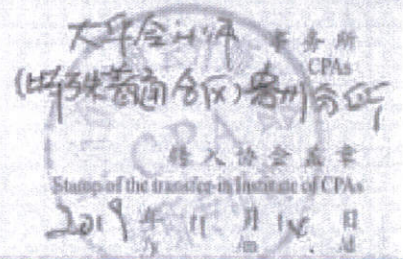 大华会计师 事务所
CPAs
(特殊普通合伙)惠州分所
转入协会盖章
Stamp of the transfer-in Institute of CPAs
2019 年 11 月 日
/y /m /d
CPA